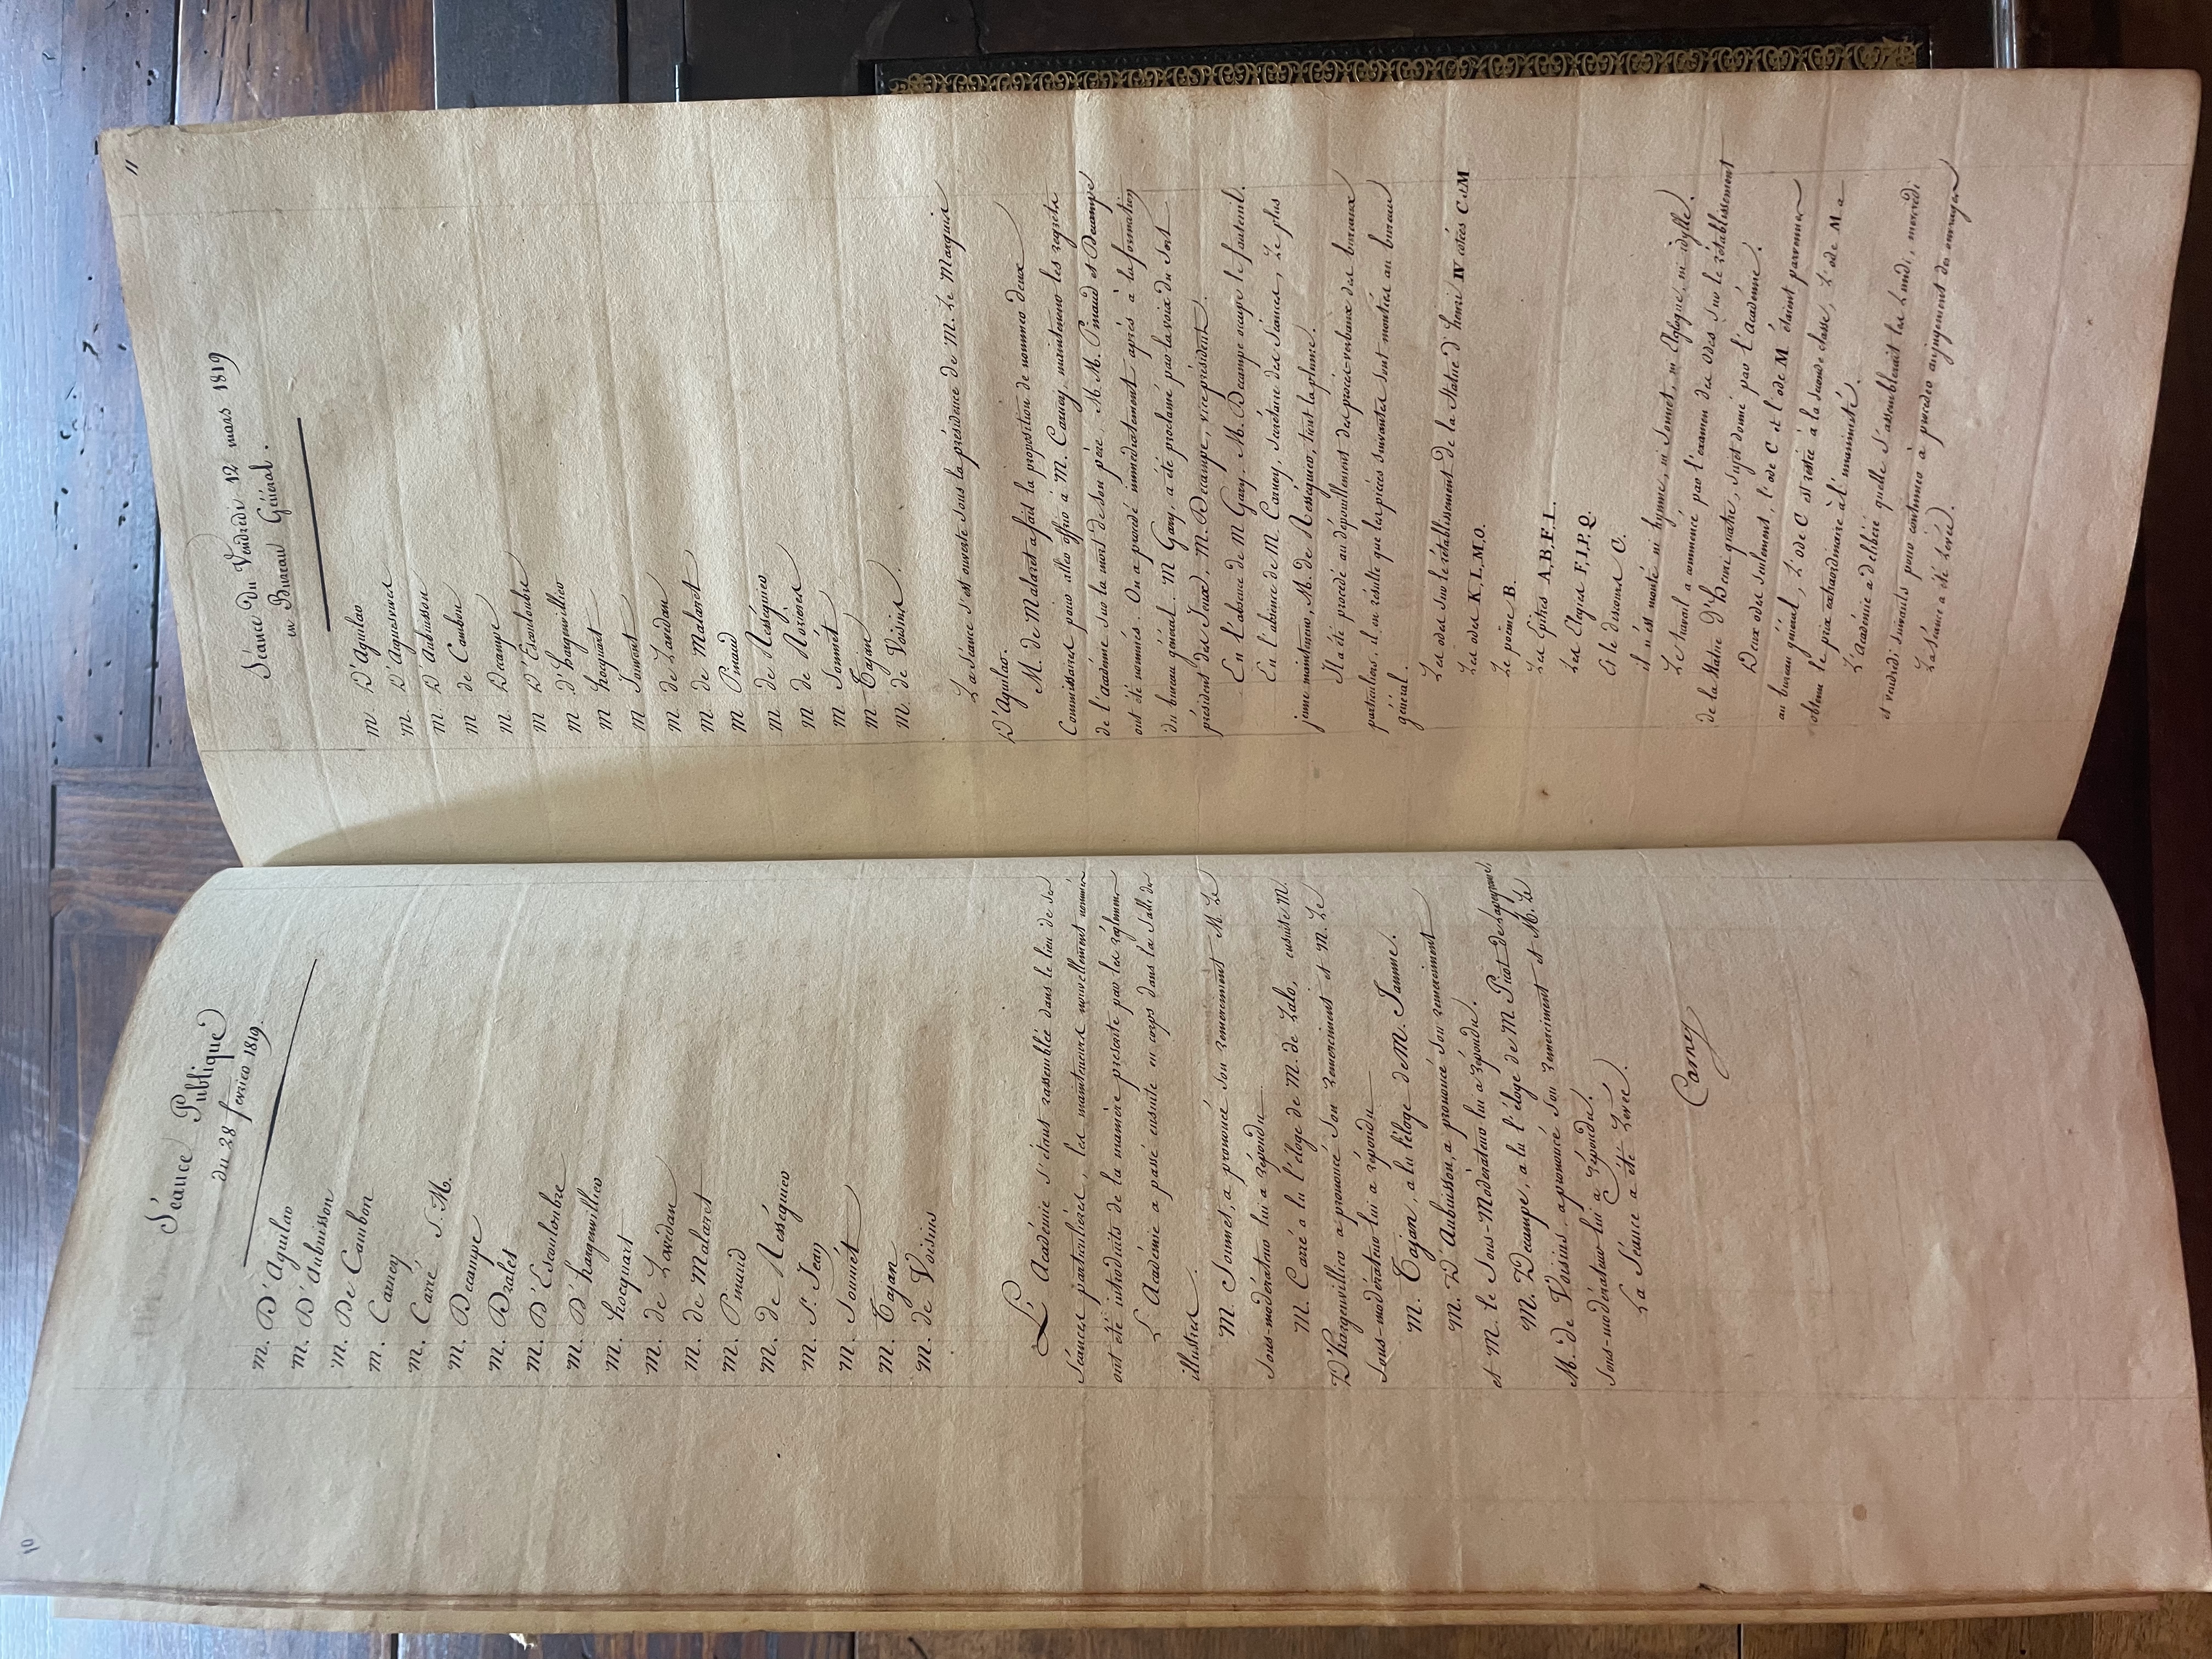 10
Séance Publique
du 28 fevrier 1819.
M. D'Aguilar
M. D'Aubuisson
M. De Cambon
M. Carney
M. Carré S. M.
M. Decampe
M. Dralet
M. D'Escouloubre
M. D'hargenvillier
M. hocquart
M. de Lavedan
M. de Malaret
M. Pinaud
M. de Rességuier
M. St. Jean
M. Soumét
M. Tajan
M. de Voisins
L'Académie s'étant rassemblée dans le lieu de ses
séances particulières, les mainteneurs nouvellement nommés
ont été introduits de la manière prescrite par les réglemens
L'Académie a passé ensuite en corps dans la Salle des
illustres.
M. Soumet, a prononcé son remerciment M. Le
Sous-modérateur lui a répondu
M. Carré a lu l'éloge de M. de Lalo, ensuite M.
D'hargenvillier a prononcé son remerciment et M. Le
Sous-modérateur lui a répondu
M. Tajan, a lu l'éloge de M. Jamme.
M. D'Aubuisson, a prononcé son remerciment
et M. le Sous-Modérateur lui a répondu.
M. Decampe, a lu l'éloge de M. Picot de Lapeyrouse
M. de Voisins, a prononcé son remerciment et M. Le
Sous-modérateur lui a répondu.
La Séance a été Levée.
Carney
11
Séance du Vendredi 12 mars 1819
en Bureau Général.
M. D'Aguilar
M. D'Aguesvives
M. D'Aubuisson
M de Cambon
M. Decampe
M D'Escouloubre
M d'hargenvillier
M hocquart
M Jouvent
M. de Lavedan
M. de Malaret
M Pinaud
M. de Rességuier
M. de Rozieres
M Soumét
M Tajan
M. de Voisins.
La séance s'est ouverte sous la présidence de M. Le Marquis
D'Aguilar.
M. de Malaret a fait la proposition de nommer deux
Commissaires pour aller offrir à M. Carney, mainteneur les regrets
de l'académie sur la mort de son père, M. M. Pinaud et Decampe
ont été nommés. On a procédé immediatement après à la formation
du bureau général. M Gary, a été proclamé par la voix du Sort
président des Jeux. M. Decampe, vice président.
En l'absence de M Gary. M. Decampe occupe le fauteuil.
En l'absence de M Carney, Secrétaire des Séances, Le plus
jeune mainteneur, M. de Rességuier, tient la plume.
Il a été procédé au dépouillement des procès-verbaux des bureaux
particuliers. il en résulte que les pièces suivantes sont montées au bureau
général.
Les odes sur le rétablissement de la Statue d'henri IV cotées C et M
Les odes K, L, M, O.
Le poëme B.
Les Epitres A, B, F, L.
Les Elegies F, I, P, Q.
Et le discours C.
il n'est monté ni hymne, ni Sonnet, ni Eglogue, ni idylle.
Le travail a commencé par l'examen des odes sur le rétablissement
de la Statue d'Henri quatre, sujet donné par l'Académie.
Deux odes seulement, l'ode C et l'ode M étaient parvenues
au bureau général, L'ode C est restée à la seconde classe, L'ode M a
obtenu le prix extraordinaire à l'unanimité.
L'Académie a délibéré quelle s'assemblerait les Lundi, mercredi
et vendredi suivants pour continuer à proceder au jugement des ouvrages
La Séance a été Levée.